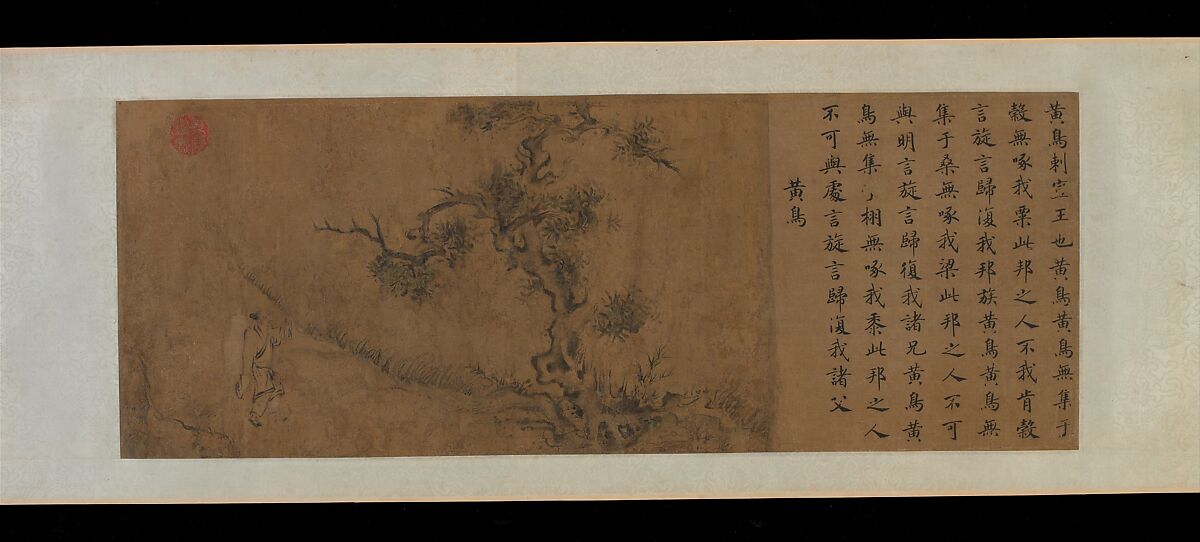 黃鳥刺宣王也黃鳥黃鳥無集于
穀無啄我粟此邦之人不我肯穀
言旋言歸復我邦族黃鳥黃鳥無
集于桑無啄我梁此邦之人不可
與明言旋言歸復我諸兄黃鳥黃
鳥無集于栩無啄我黍此邦之人
不可與處言旋言歸復我諸父
黃鳥